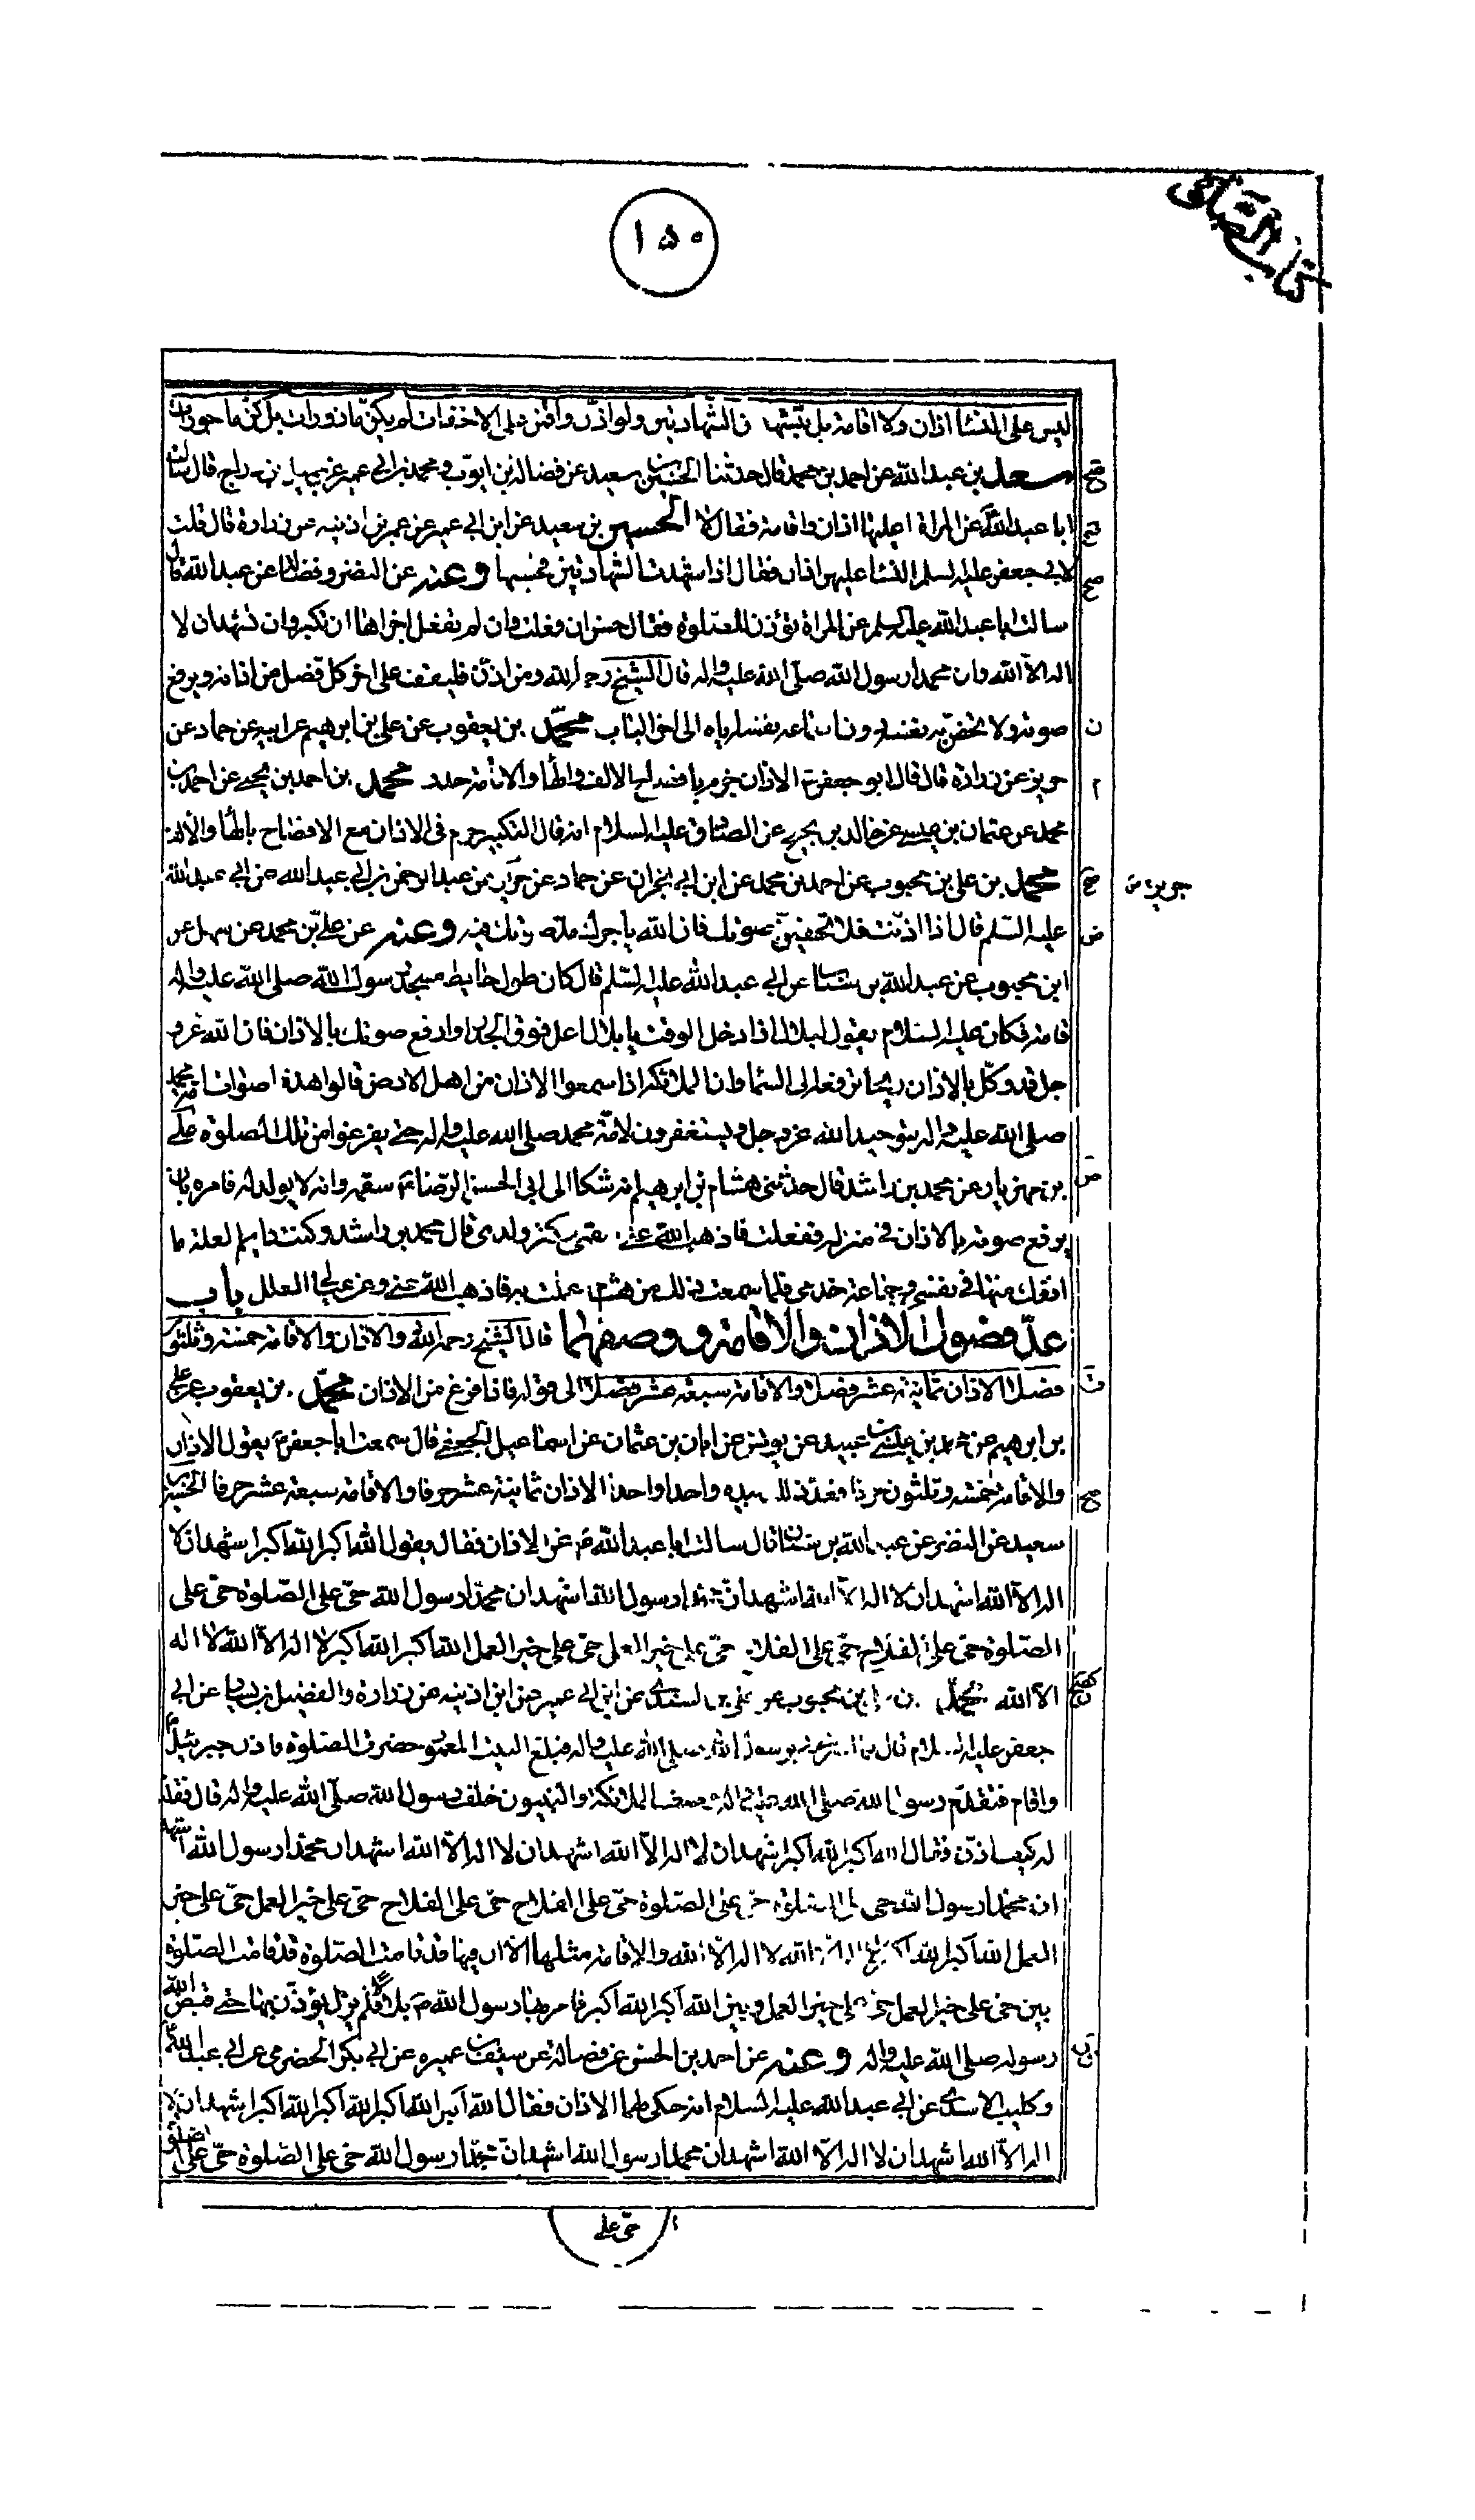 كتاب الصلوة
١٥٠
ليس على النساء اذان ولا اقامة بل يتشهدن الشهادتين ولو اذن واقمن على الاخفات لم يكن مأزورات بل كن ماجورات
سعد بن عبد الله عن احمد بن محمد قال حدثنا الحسين بن سعيد عن فضالة بن ايوب ومحمد بن ابي عمير عن جميل بن دراج قال سالت
ابا عبد الله عن المراة اعليها اذان واقامة فقال لا الحسين بن سعيد عن ابن ابي عمير عن عمر بن اذينه عن زرارة قال قلت
لابي جعفر عليه السلم النساء عليهن اذان فقال اذا شهدت الشهادتين فحسبها وعنه عن النضر وفضالة عن عبد الله قال
سالت ابا عبد الله عليه السلم عن المراة تؤذن للصلوة فقال حسن ان فعلت وان لم تفعل اجزاها ان تكبر وان تشهد ان لا
اله الا الله وان محمدا رسول الله صلى الله عليه واله قال الشيخ رحمه الله ومن اذن فليقف على اخر كل فصل من اذانه ويرفع
صوته ولا يخفض به نفسه دون اسماعه نفسه اياه الى اخر الباب محمد بن يعقوب عن علي بن ابرهيم عن ابيه عن حماد عن
حريز عن زرارة قال قال ابو جعفر ع الاذان جزم بافصاح الالف والهاء والاقامة حدد محمد بن احمد بن يحيى عن احمد بن
محمد عن عثمان بن عيسى عن خالد بن نجيح عن الصادق عليه السلام انه قال التكبير جزم في الاذان مع الافصاح بالهاء والالف
محمد بن علي بن محبوب عن احمد بن محمد عن ابن ابي نجران عن حماد عن حريز عن عبد الرحمن بن ابي عبد الله عن ابي عبد الله
عليه السلم قال اذا اذنت فلا تخفين صوتك فان الله ياجرك مد صوتك فيه وعنه عن علي بن محمد عن سهل عن
ابن محبوب عن عبد الله بن سنان عن ابي عبد الله عليه السلم قال كان طول حايط مسجد رسول الله صلى الله عليه واله
قامة فكان عليه السلام يقول لبلال اذا دخل الوقت يا بلال اعل فوق الجدار وارفع صوتك بالاذان فان الله عز و
جل قد وكل بالاذان ريحا ترفعه الى السماء وان الملائكة اذا سمعوا الاذان من اهل الارض قالوا هذه اصوات امة محمد
صلى الله عليه واله بتوحيد الله عز وجل ويستغفرون لامة محمد صلى الله عليه واله حتى يفرغوا من تلك الصلوة علي
بن مهزيار عن محمد بن راشد قال حدثني هشام بن ابرهيم انه شكا الى ابي الحسن الرضا ع سقمه وانه لا يولد له فامره بان
يرفع صوته بالاذان في منزله ففعلت فاذهب الله عني سقمي وكثر ولدي قال محمد بن راشد وكنت دايم العلة ما
انفك منها في نفسي وجماعة خدمي فلما سمعت ذلك من هشام عملت به فاذهب الله عني وعن عيالي العلل باب
عدد فصول الاذان والاقامة ووصفهما قال الشيخ رحمه الله والاذان والاقامة خمسة وثلثون
فصلا الاذان ثمانية عشر فصلا والاقامة سبعة عشر فصلا الى قوله فاذا فرغ من الاذان محمد بن يعقوب عن علي
بن ابرهيم عن محمد بن عيسى بن عبيد عن يونس عن ابان بن عثمان عن اسماعيل الجعفي قال سمعت ابا جعفر ع يقول الاذان
والاقامة خمسة وثلثون حرفا فعد ذلك بيده واحدا واحدا الاذان ثمانية عشر حرفا والاقامة سبعة عشر حرفا الحسين بن
سعيد عن النضر عن عبد الله بن سنان قال سالت ابا عبد الله ع عن الاذان فقال يقول الله اكبر الله اكبر اشهد ان لا
اله الا الله اشهد ان لا اله الا الله اشهد ان محمدا رسول الله اشهد ان محمدا رسول الله حي على الصلوة حي على
الصلوة حي على الفلاح حي على الفلاح حي على خير العمل حي على خير العمل الله اكبر الله اكبر لا اله الا الله لا اله
الا الله محمد بن علي بن محبوب عن علي بن السندي عن ابن ابي عمير عن ابن اذينه عن زرارة والفضيل بن يسار عن ابي
جعفر عليه السلام قال لما اسري برسول الله صلى الله عليه واله فبلغ البيت المعمور حضرت الصلوة فاذن جبرئيل
واقام فتقدم رسول الله صلى الله عليه واله وصف الملائكة والنبيون خلف رسول الله صلى الله عليه واله قال فقلنا
له كيف اذن فقال الله اكبر الله اكبر اشهد ان لا اله الا الله اشهد ان لا اله الا الله اشهد ان محمدا رسول الله اشهد
ان محمدا رسول الله حي على الصلوة حي على الصلوة حي على الفلاح حي على الفلاح حي على خير العمل حي على خير
العمل الله اكبر الله اكبر لا اله الا الله لا اله الا الله والاقامة مثلها الا ان فيها قد قامت الصلوة قد قامت الصلوة
بين حي على خير العمل حي على خير العمل وبين الله اكبر الله اكبر فامر بها رسول الله ص بلالا فلم يزل يؤذن بها حتى قبض الله
رسوله صلى الله عليه واله وعنه عن احمد بن الحسن عن فضالة عن سيف بن عميره عن ابي بكر الحضرمي عن ابي عبد الله
وكليب الاسدي عن ابي عبد الله عليه السلام انه حكى لهما الاذان فقال الله اكبر الله اكبر الله اكبر الله اكبر اشهد ان لا
اله الا الله اشهد ان لا اله الا الله اشهد ان محمدا رسول الله اشهد ان محمدا رسول الله حي على الصلوة حي على الصلوة
حي على